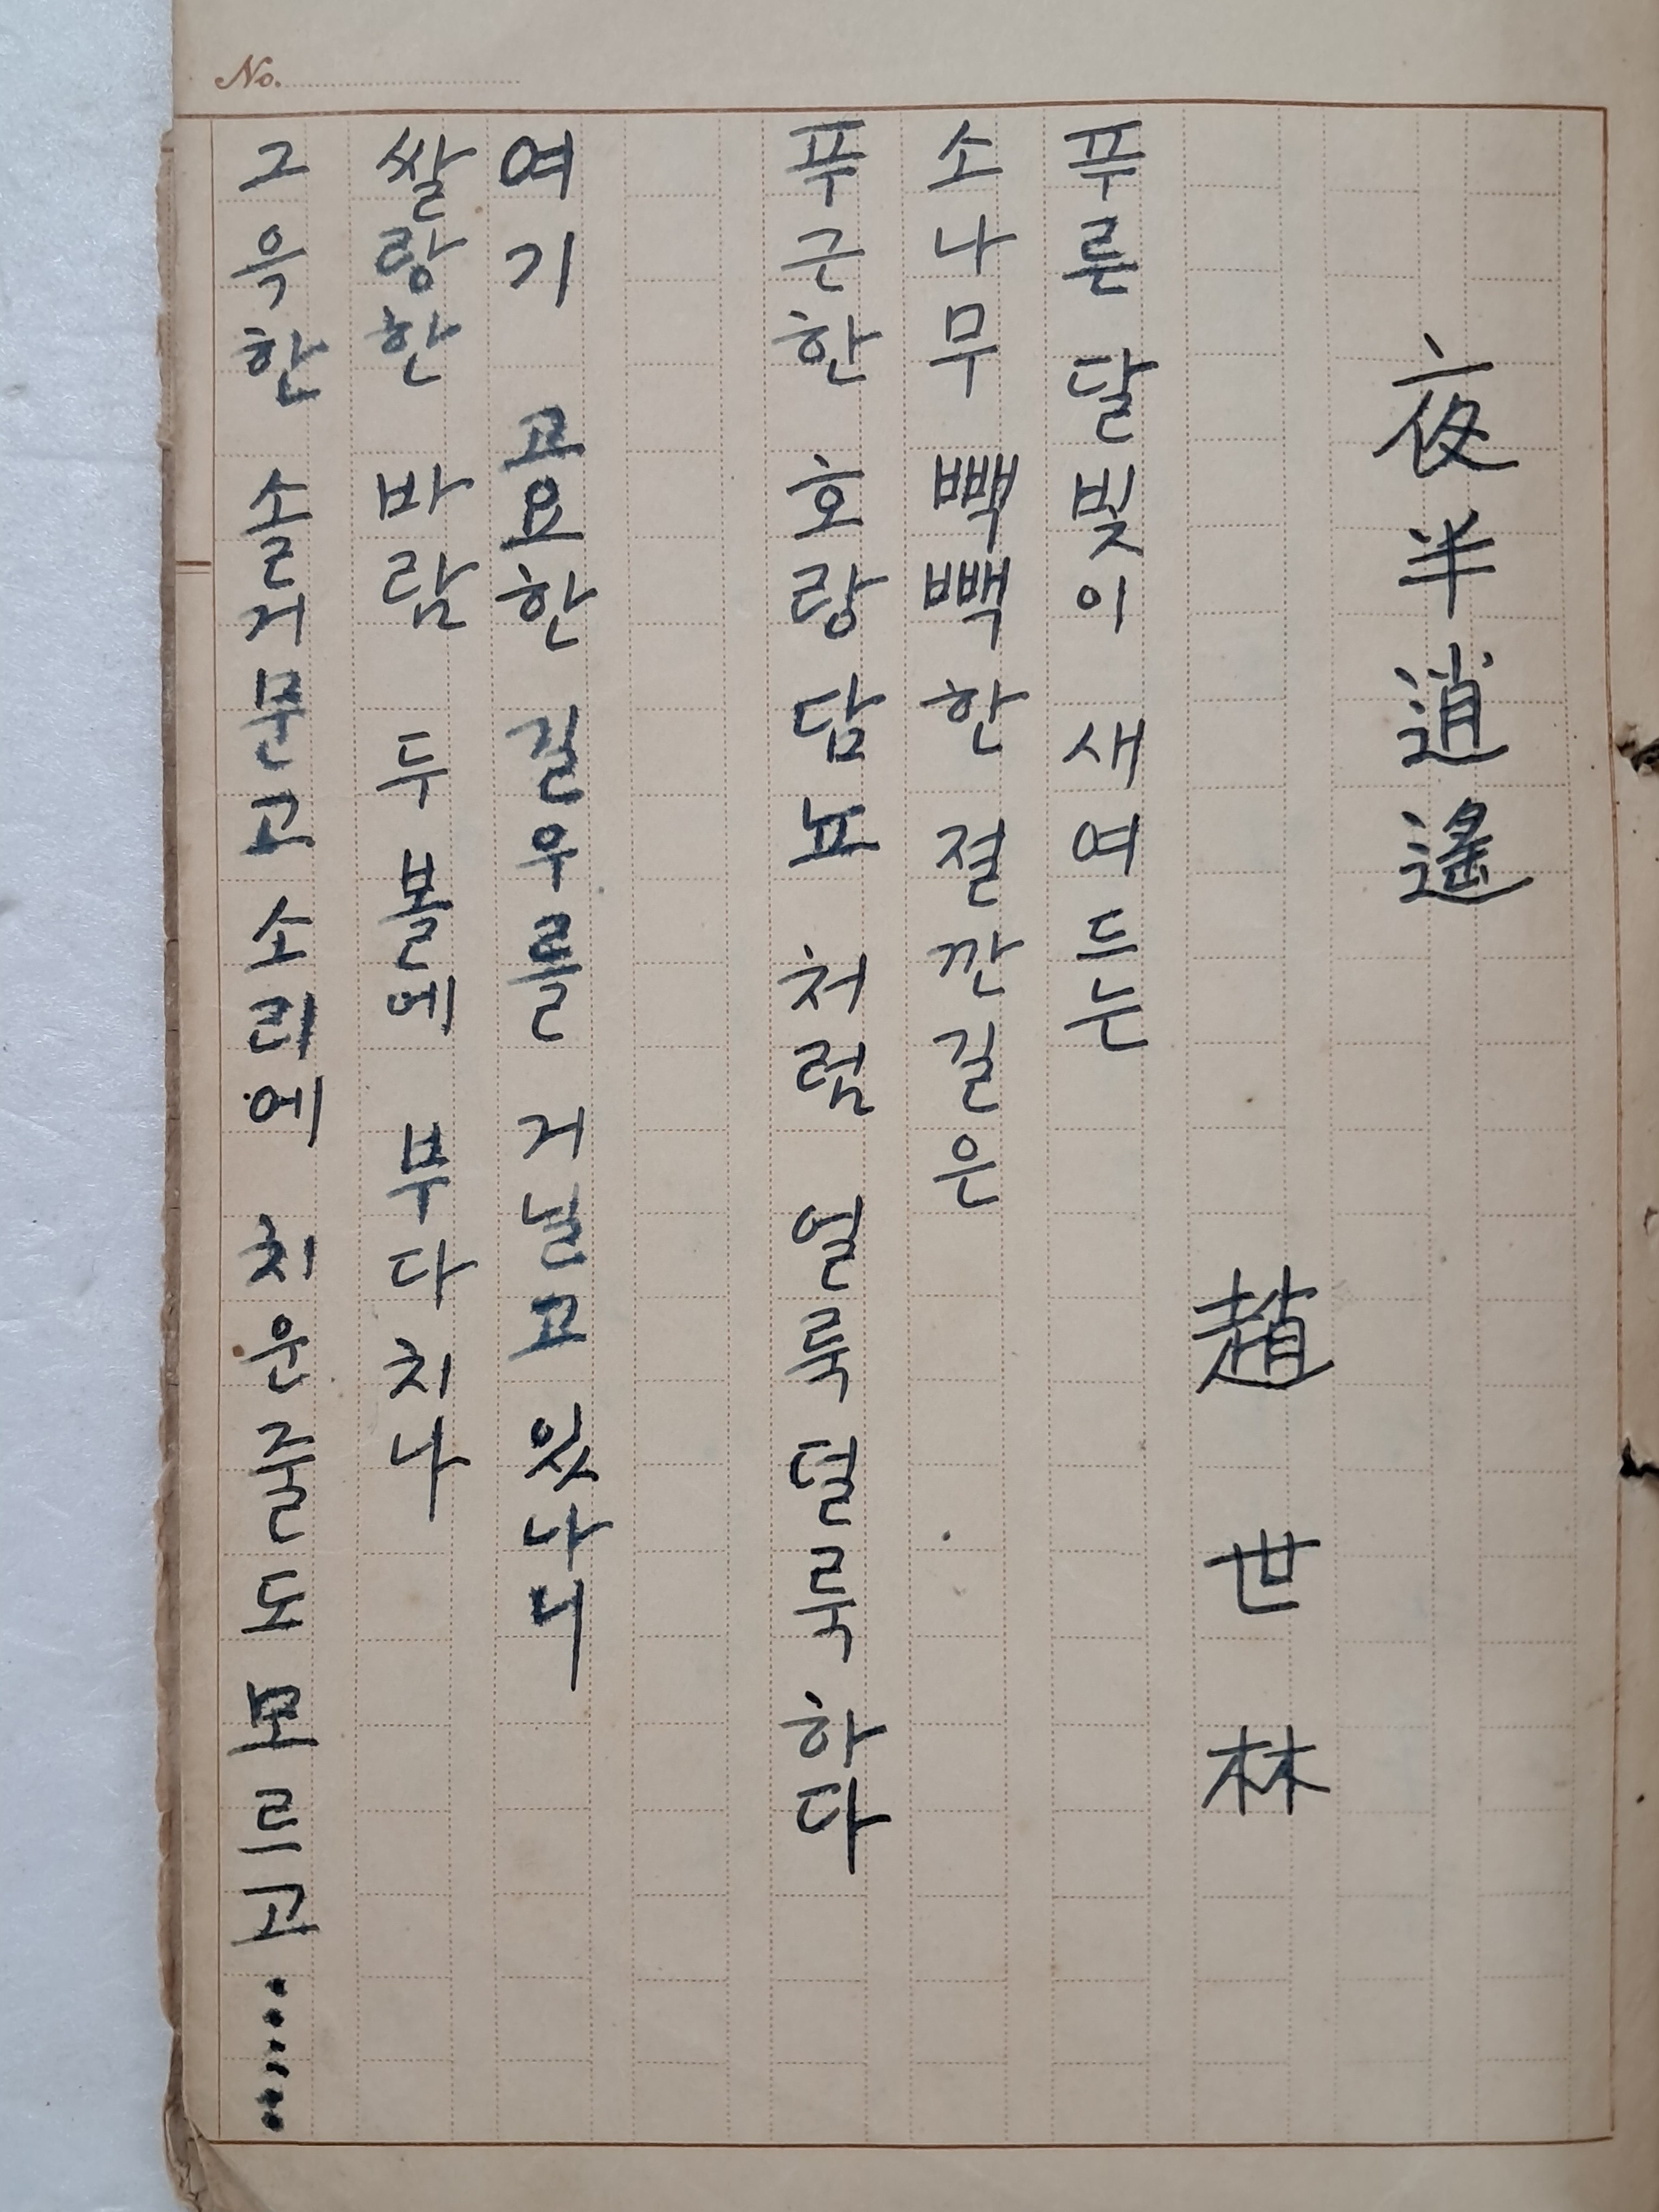 No.
夜半逍遙
趙世林
푸른 달빛이 새여드는
소나무 빽빽한 절깐길은
푸근한 호랑담뇨 처럼 얼룩덜룩하다
여기 고요한 길우를 거닐고 있나니
쌀랑한 바람 두볼에 부다치나
그윽한 솔거문고소리에 치운줄도 모르고······